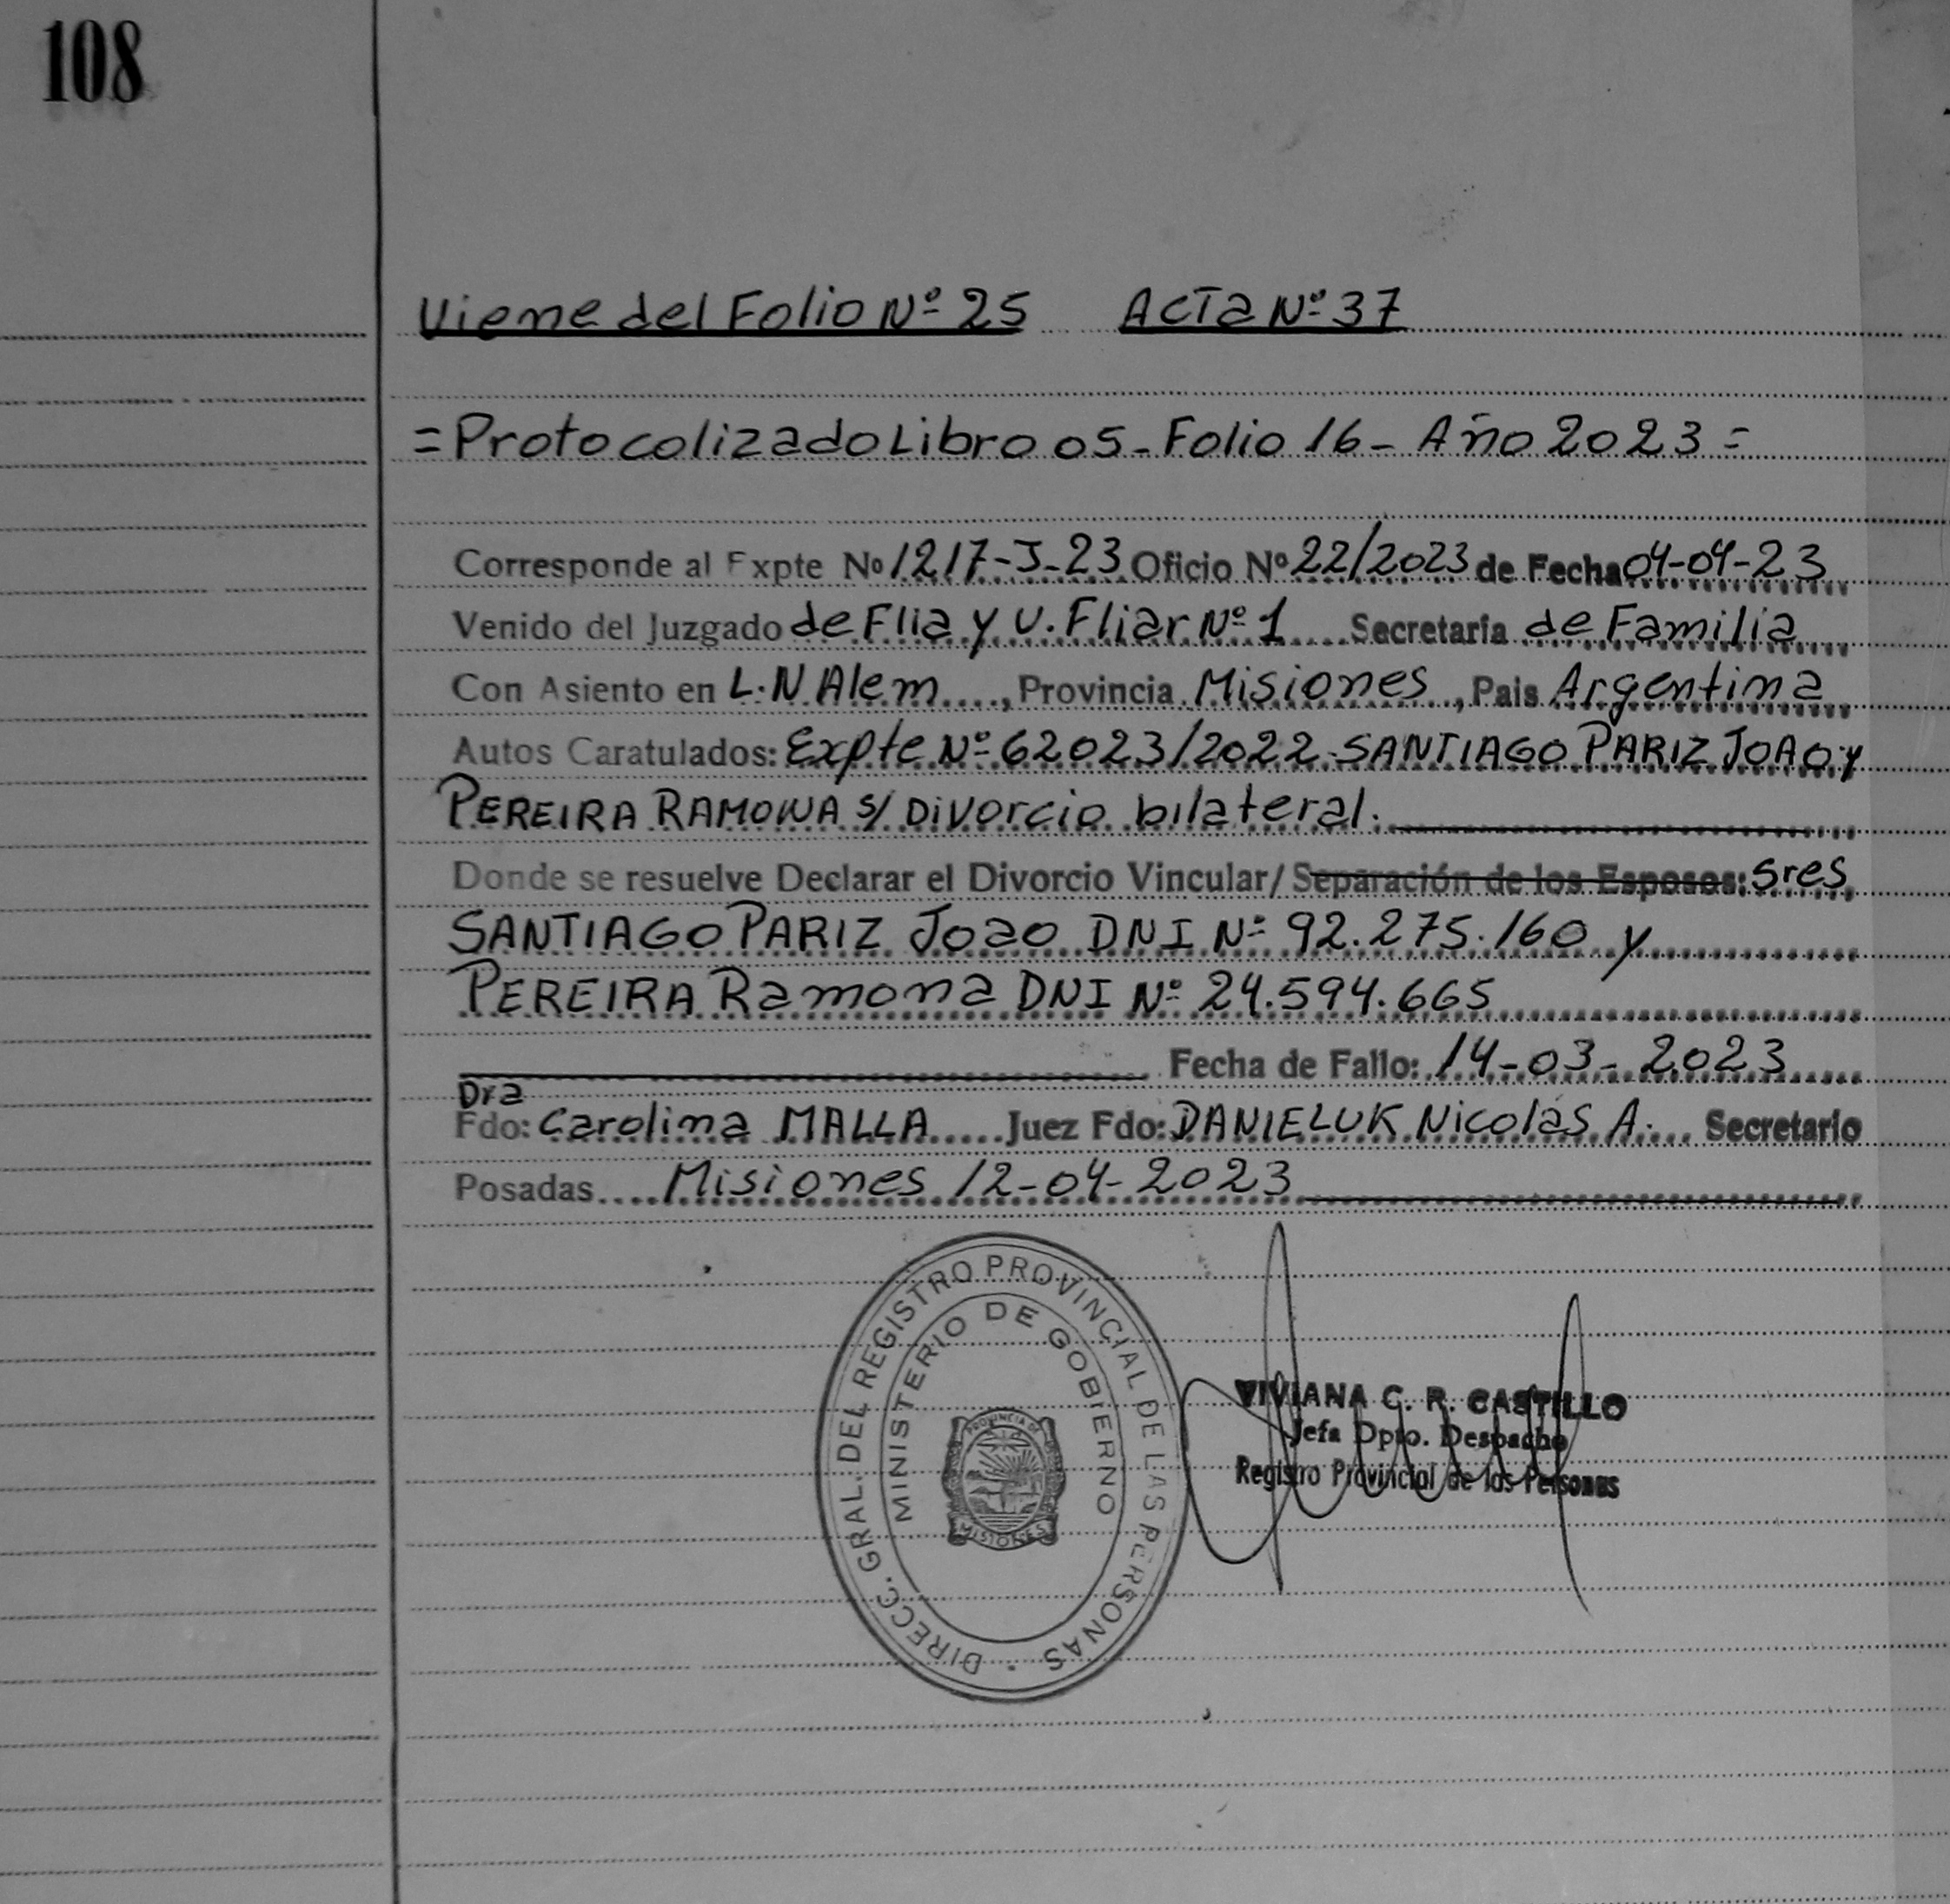 108
Viene del Folio Nº 25 ACTA Nº 37
= Protocolizado Libro 05 - Folio 16 - Año 2023 =
Corresponde al Expte Nº 1217-J-23 Oficio Nº 22/2023 de Fecha 04-04-23
Venido del Juzgado de Flia y V. Fliar Nº 1 Secretaría de Familia
Con Asiento en L.N Alem, Provincia Misiones, Pais Argentina
Autos Caratulados: Expte Nº 62023/2022 SANTIAGO PARIZ JOAO y
PEREIRA RAMONA s/ Divorcio bilateral.
Donde se resuelve Declarar el Divorcio Vincular/ Separación de los Esposos: Sres
SANTIAGO PARIZ Joao DNI Nº 92.275.160 y
PEREIRA Ramona DNI Nº 24.594.665
Fecha de Fallo: 14-03-2023
Dra
Fdo: Carolina MALLA Juez Fdo: DANIELUK Nicolás A. Secretario
Posadas Misiones 12-04-2023
DIRECC. GRAL. DEL REGISTRO PROVINCIAL DE LAS PERSONAS
MINISTERIO DE GOBIERNO
PROVINCIA DE
MISIONES
VIVIANA C. R. CASTILLO
Jefa Dpto. Despacho
Registro Provincial de las Personas